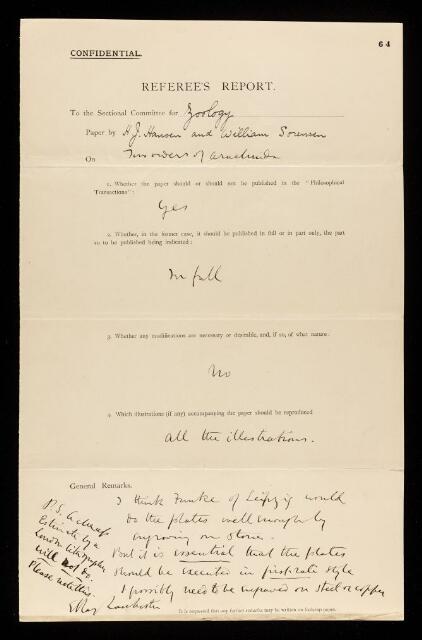 64
CONFIDENTIAL.
REFEREE'S REPORT.
To the Sectional Committee for Zoology
Paper by H. J. Hansen and William Sorensen
On Two orders of arachnida
1. Whether the paper should or should not be published in the "Philosophical
Transactions":
Yes
2. Whether, in the former case, it should be published in full or in part only, the part
so to be published being indicated:
In full
3. Whether any modifications are necessary or desirable, and, if so, of what nature:
No
4. Which illustrations (if any) accompanying the paper should be reproduced
all the illustrations.
General Remarks.
I think Funke of Leipzig would
do the plates well enough by
engraving on stone.
But it is essential that the plates
should be executed in first rate style
& possibly need to be engraved on steel or copper
E Ray Lankester
P.S. A cheap
Estimate by a
London lithographer
will not do.
Please note this.
It is requested that any further remarks may be written on foolscap paper.